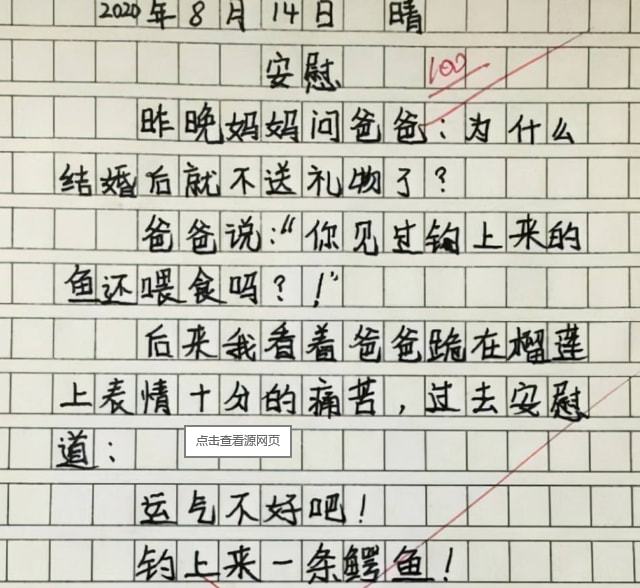 2020年8月14日 晴
安慰 100
昨晚妈妈问爸爸:为什么
结婚后就不送礼物了?
爸爸说:“你见过钩上来的
鱼还喂食吗?!”
后来我看着爸爸跪在榴莲
上表情十分的痛苦,过去安慰
道:
点击查看源网页
运气不好吧!
钓上来一条鳄鱼!